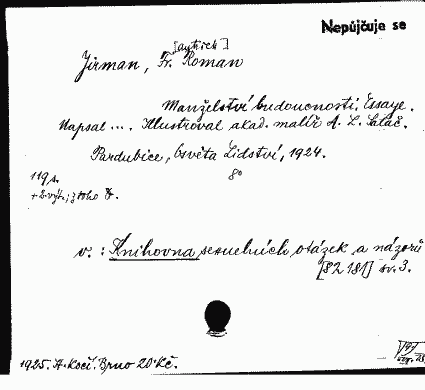 Nepůjčuje se
Jirman, Fr. Roman
Manželství budoucnosti. Essaye.
Napsal ... . Illustroval akad. malíř A. L. Salač.
Pardubice, Osvěta Lidství, 1924.
8°
119 s.
v. : Knihovna sexuelních otázek a názorů
[82 181] sv. 3.
1925. A. Kočí. Brno 20 Kč.